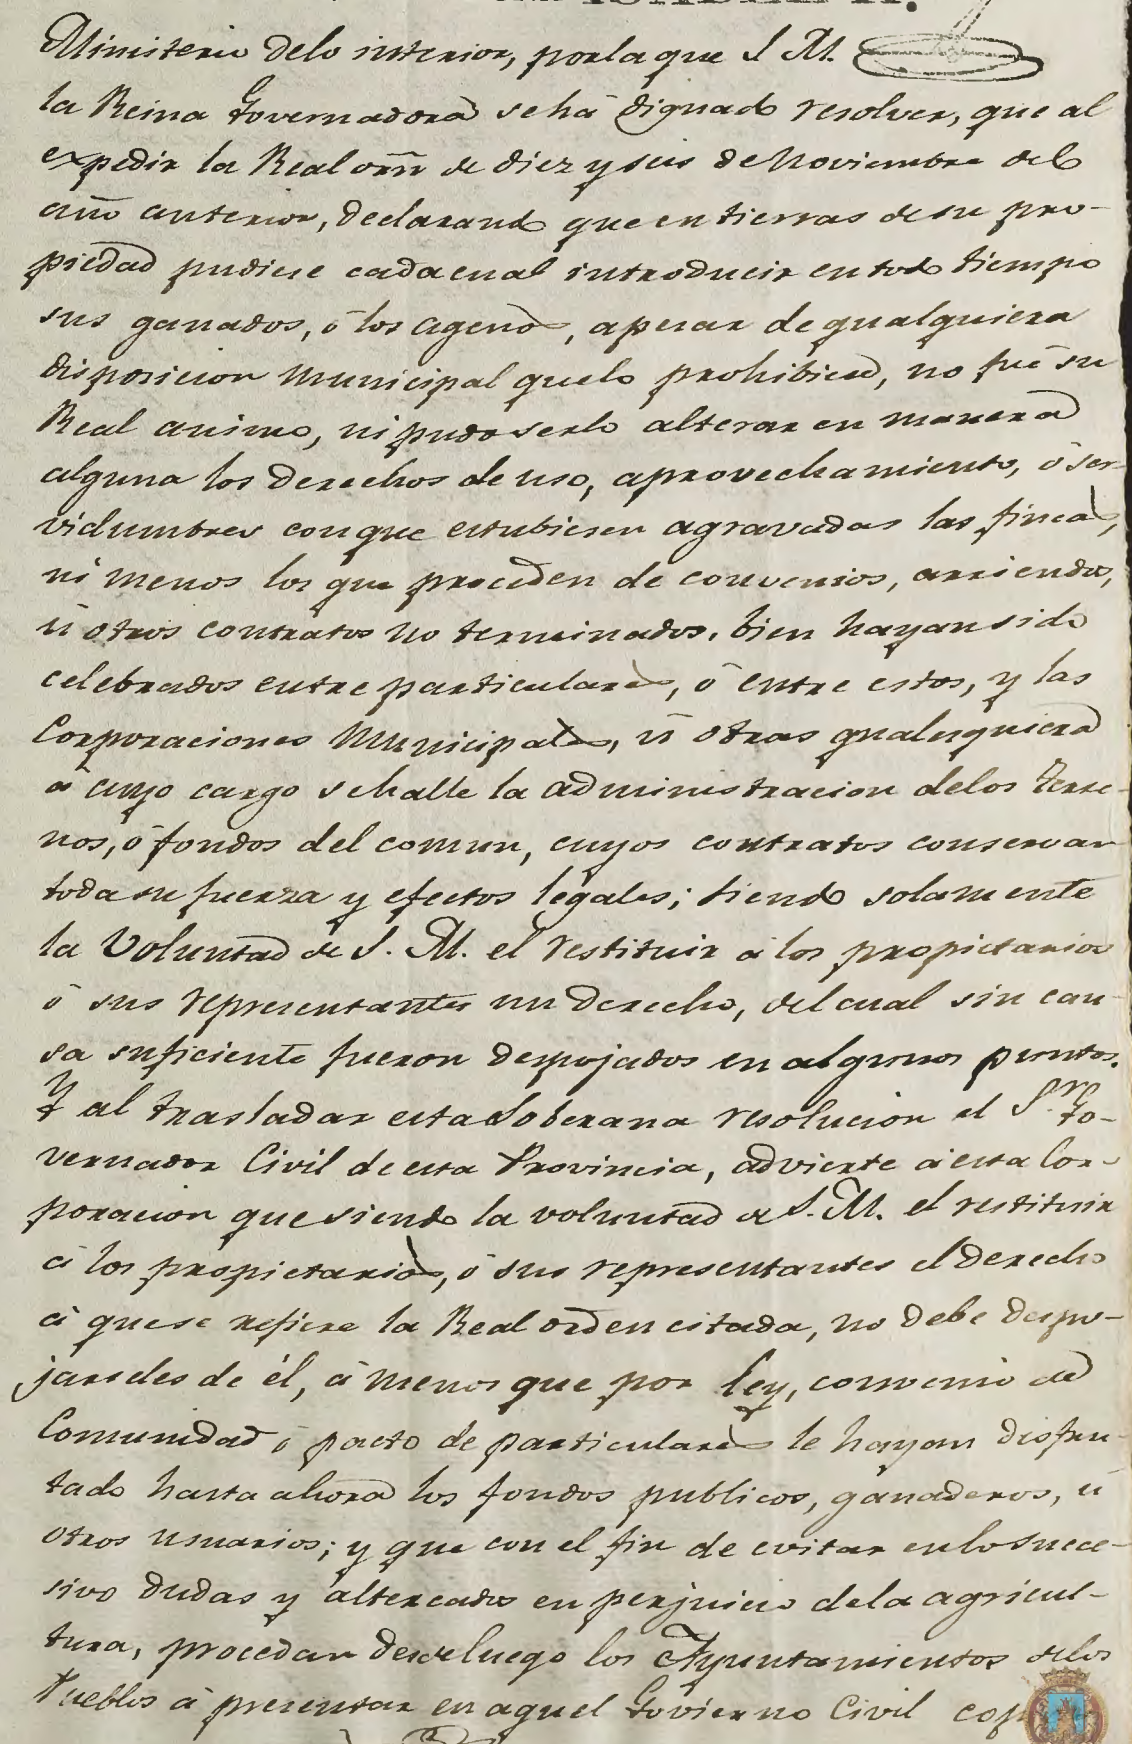 Ministerio delo interior, porla que S. M.
la Reina Governadora seha dignado resolver, que al
expedir la Real orn de diez y seis de Noviembre del
año anterior, declarando que en tierras de su pro-
piedad pudiese cadacual introducir en todo tiempo
sus ganados, ó los agenos, apesar de qualquiera
disposicion Municipal quelo prohibiese, no fué su
Real animo, ni pudo serlo alterar en manera
alguna los derechos de uso, aprovechamiento, ó ser-
vidumbres conque estubiesen agravadas las fincas,
ni menos los que proceden de convenios, arriendos,
ú otros contratos no terminados, bien hayan sido
celebrados entre particulares, ó entre estos, y las
Corporaciones Municipales, ú otras qualesquiera
á cuyo cargo sehalle la administracion delos terre-
nos, ó fondos del comun, cuyos contratos conservan
toda su fuerza y efectos legales; siendo solamente
la Voluntad de S. M. el restituir á los propietarios
ó sus representantes un derecho, del cual sin cau-
sa suficiente fueron despojados en algunos puntos.
Y al trasladar esta Soberana resolucion el S.r Go-
vernador Civil de esta Provincia, advierte á esta Cor-
poracion que siendo la voluntad de S. M. el restituir
á los propietarios, ó sus representantes el derecho
á quese refiere la Real orden citada, no debe despo-
jarseles de él, á menos que por ley, convenio de
Comunidad ó pacto de particulares le hayan disfru-
tado hasta ahora los fondos publicos, ganaderos, ú
otros usuarios; y que con el fin de evitar enlosuce-
sivo dudas y altercados en perjuicio dela agricul-
tura, procedan desdeluego los Ayuntamientos delos
Pueblos á presentar en aquel Govierno Civil